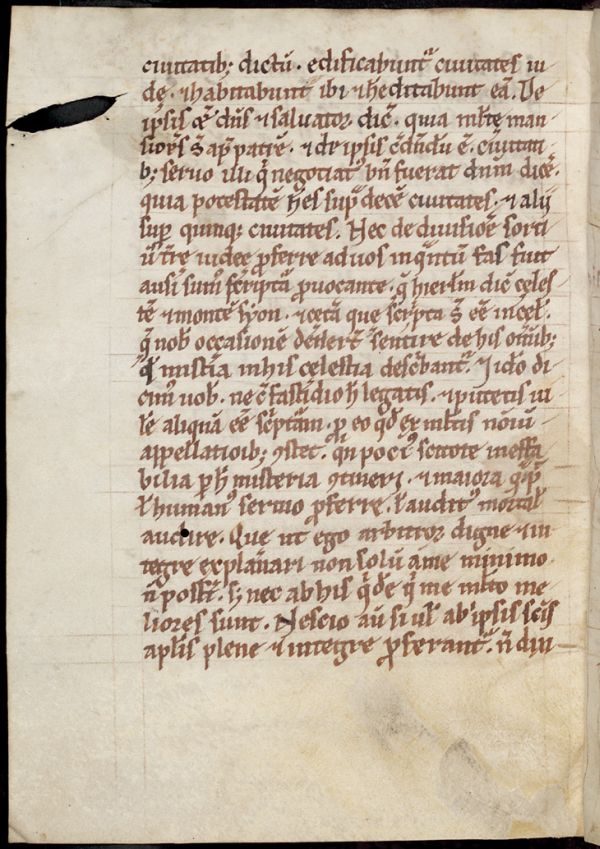 ciuitatib; dictū · edificabunt᷑ ciuitates iu
dę · ⁊ habitabunt ibi ⁊ h̄editabunt eā. De
ipsis q̄ dn̄s ⁊ saluator dic̄ · quia ml̄te man
siones s̄ ap̄ patrē · ⁊ de ipsis c̄dndū ē · ciuitati
b; seruo illi q̄ negociat᷒ bn̄ fuerat dn̄m dic̄e ·
quia potestatē h̄es sup᷑ decē ciuitates · ⁊ alij
sup quinq; ciuitates. Hec de diuisiōe sorti
ū t̄re iudee p̄ferre ad uos inq̄ntū fas fuit
ausi sum᷒ sc̄ripta p̄uocante · q̄ hierl̄m dic̄ cęles
tē ⁊ montē syon · ⁊ cetā que sc̄ripta s̄ eē in cęl̄ ·
q̄ nob̄ occasionē dedert̄ sentire de his om̄ib;
qd̄ mistīa in his cęlestia desc̄bant᷑. Ido di
cim᷒ uob̄ · ne c̄ fastidio h̄ legatis · ⁊ putetis ui
lē aliquā eē sc̄ptām · p̄ eo qd̄ ex ml̄tis noīū
appellatioib; ꝯstet · qn̄ poc᷒ scitote ineffa
bilia p̄ h̄ misteria ꝯtineri · ⁊ maiora q̄
ł human᷒ sermo p̄ferre · ł audit᷒ mortal̄
audire. Que ut ego arbitror digne ⁊ in
tegre explanari non solū a me minimo
n̄ post᷑ · s; nec ab his q̄de q̄ me ml̄to me
liores sunt. Nescio au si ul̄ ab ipsis sc̄is
apl̄is plene ⁊ integre p̄ferant᷑ · n̄ diu